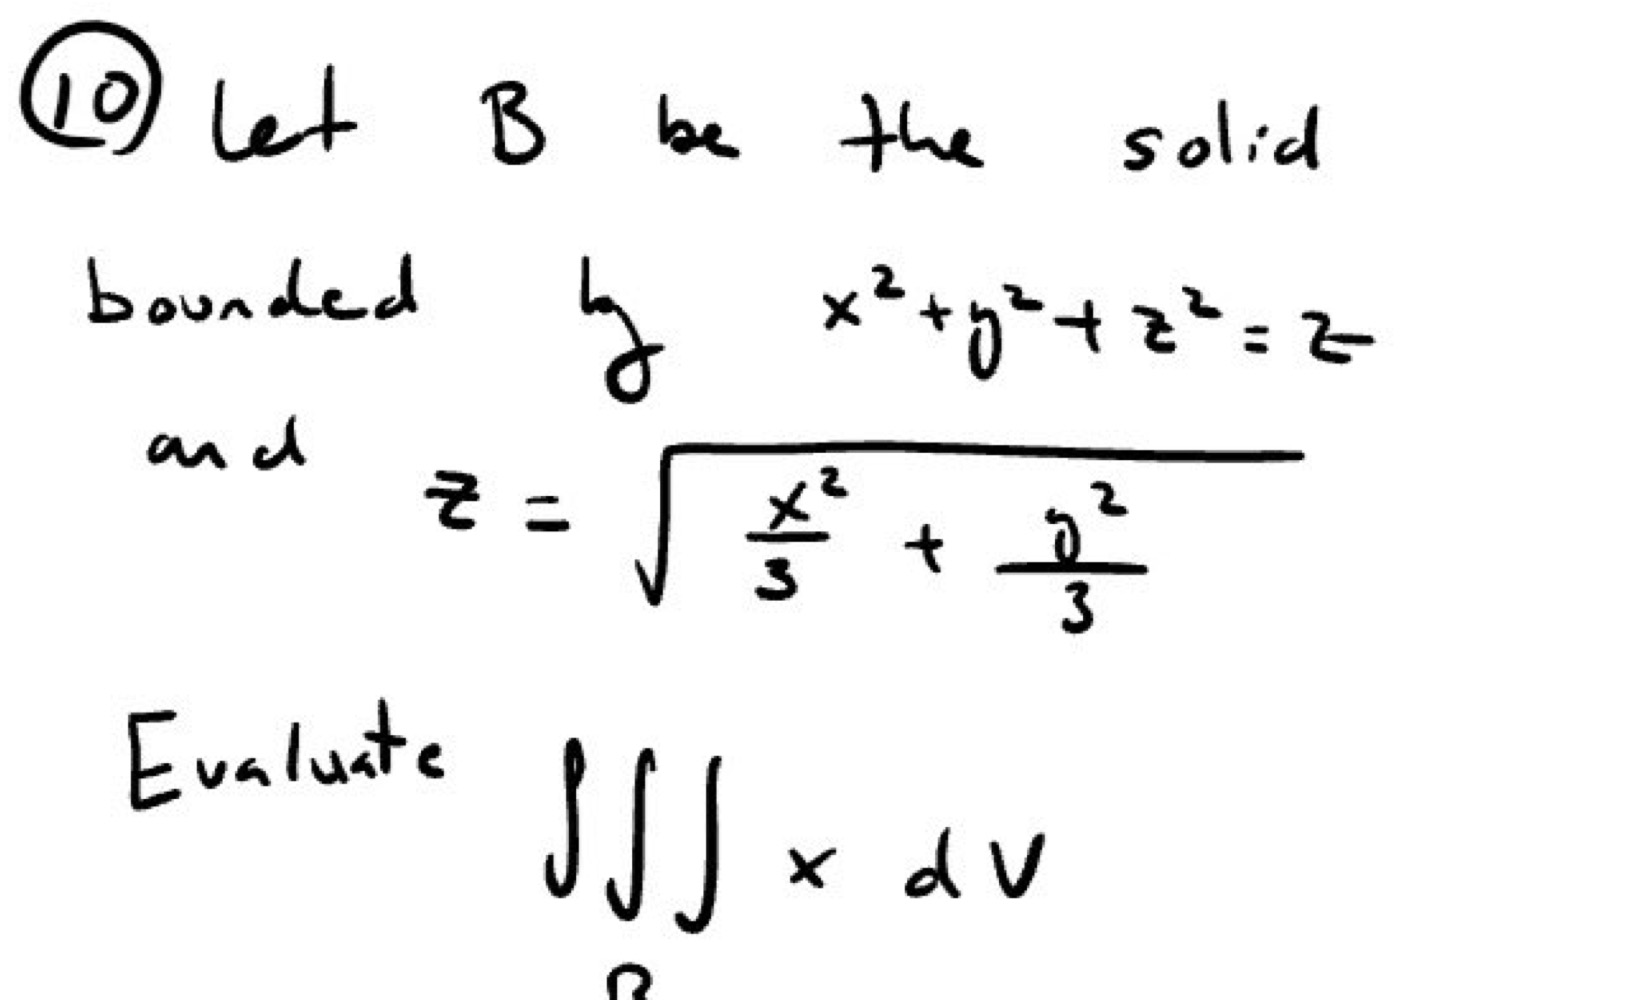 10 Let B be the solid
bounded by x² + y² + z² = z
and z = √(x²/3 + y²/3)
Evaluate ∫∫∫ x dV
B